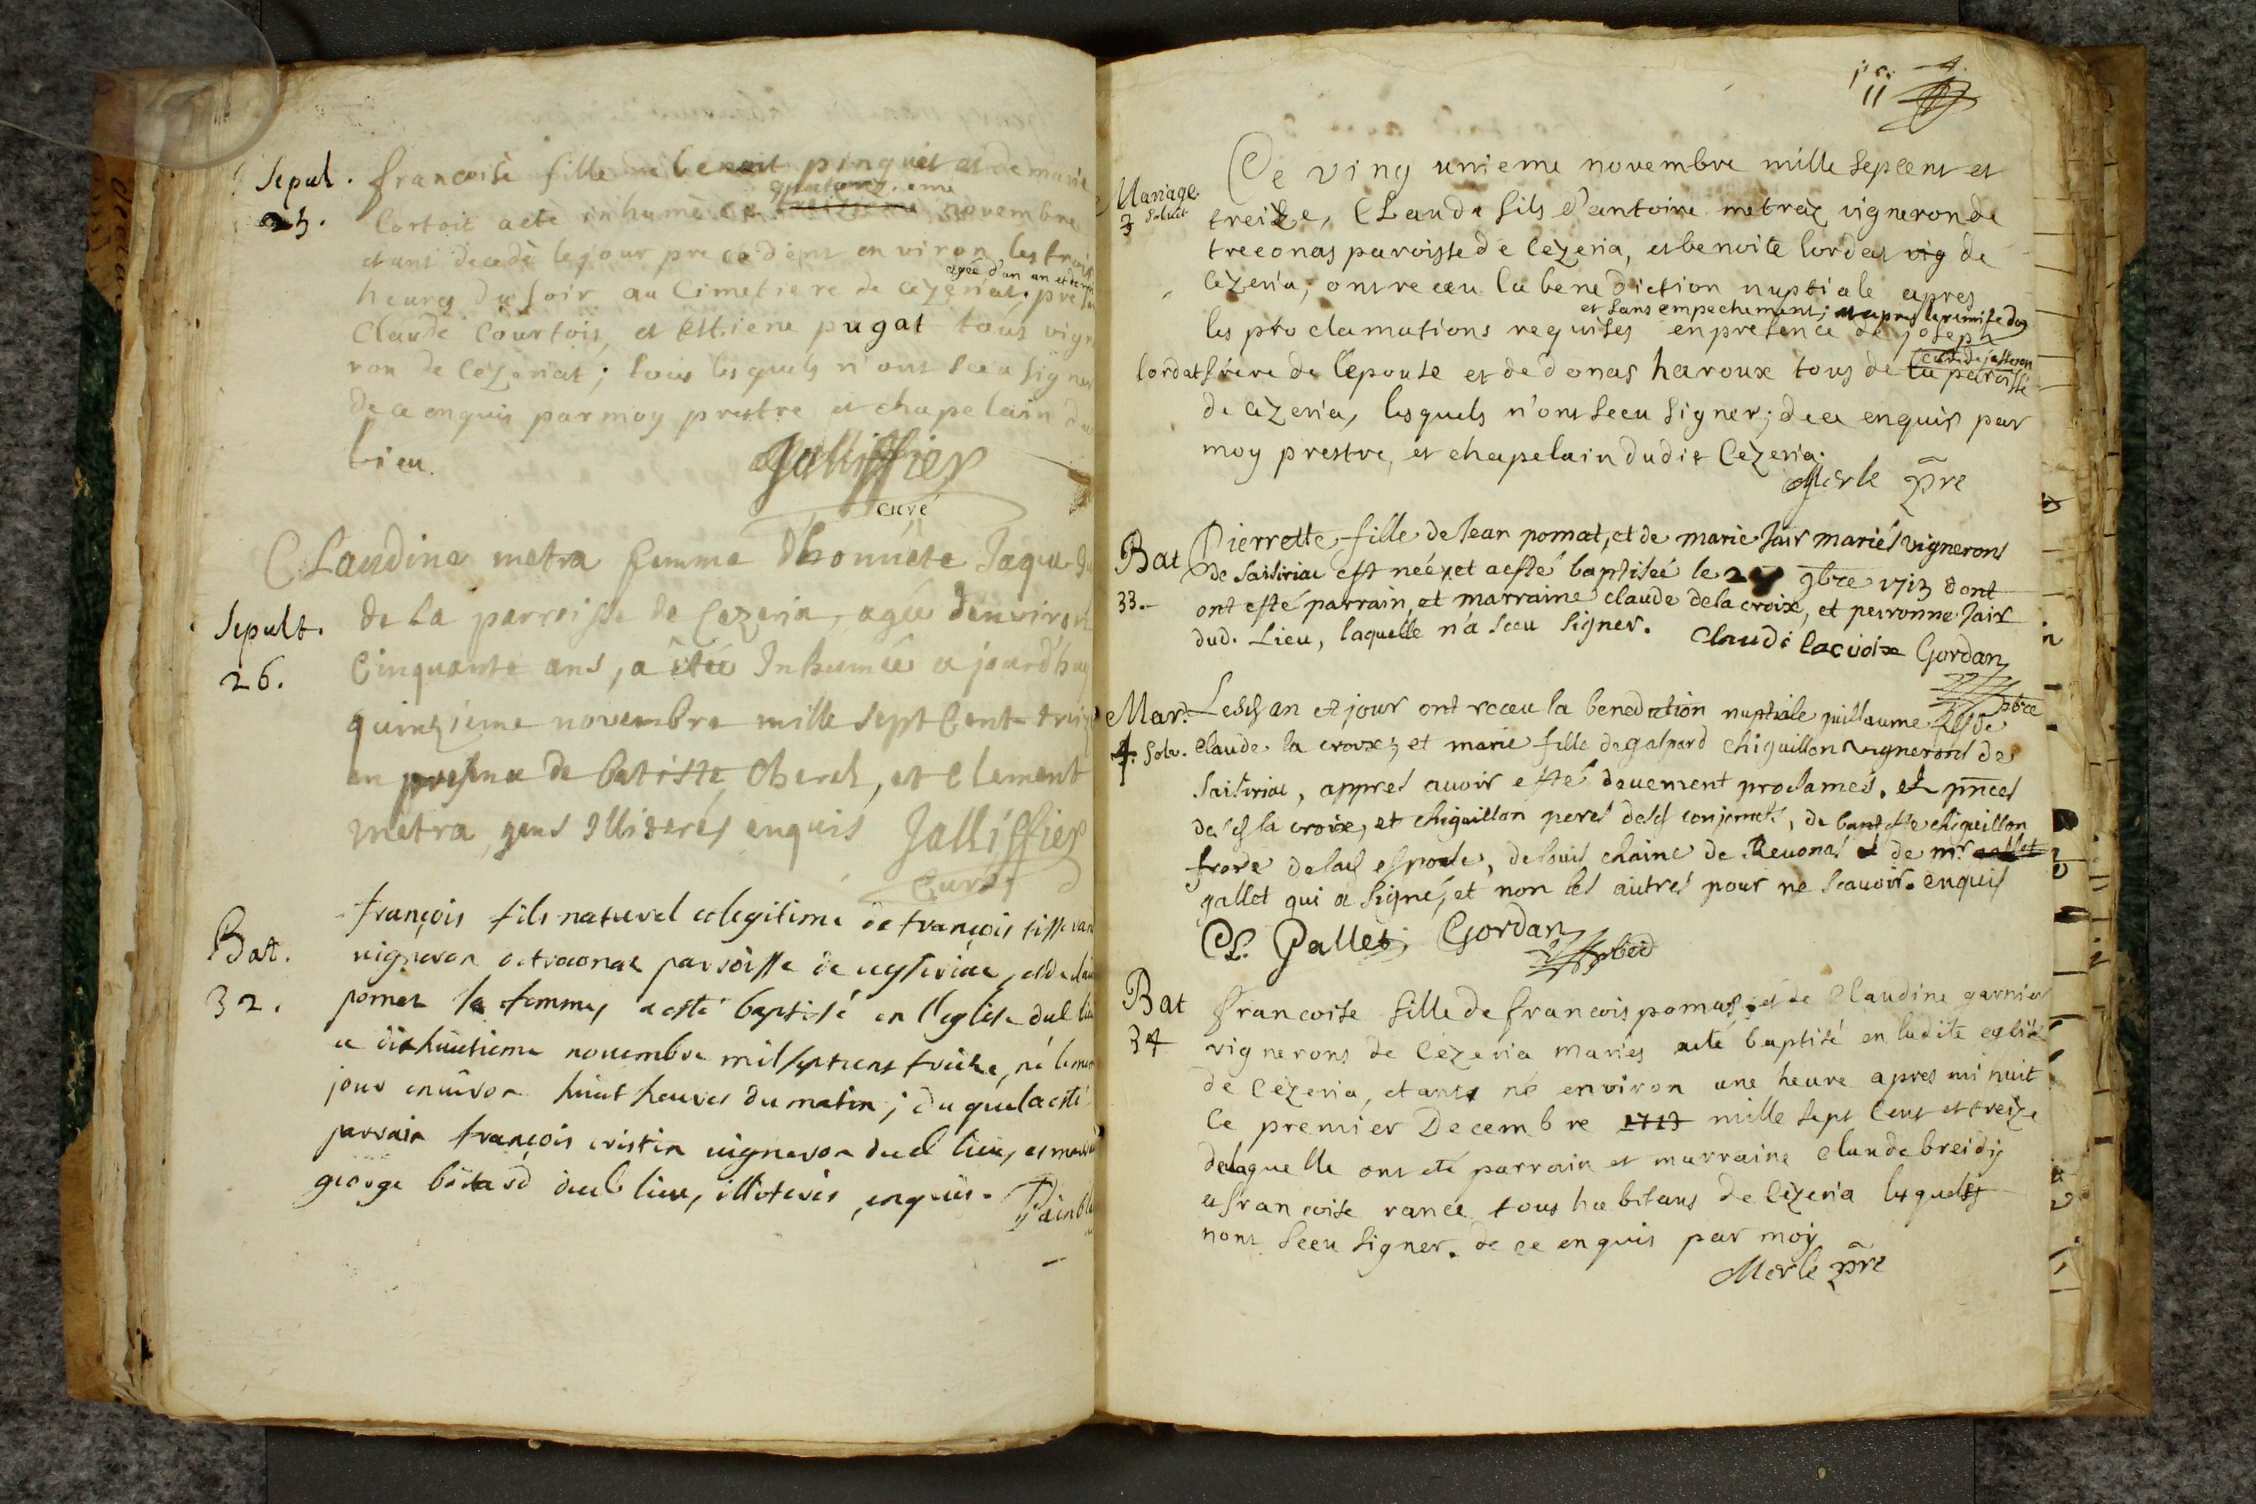 Sepul.
25.
francoise fille de benoit pinguet et de marie
quatorzieme
Cortois a etè inhumè ce treizieme novembre
etant decedè le jour precedent environ les trois
agée d'un an et demi
heures du soir au Cimetiere de cezeriat. presens
Claude Courtois, et Ettiene pugat tous vigne
ron de Cezeriat; tous lesquels n'ont sceu signer
de ce enquis par moy prestre et chapelain du
lieu.
Jalliffier
curé
Sepult.
26.
Claudine metra femme d'honnéte Jaque
de la parroisse de Cezeria, agée d'environ
Cinquante ans, a étée Inhumée ajourd'huy
quinzieme novembre mille sept Cent treize
en presence de batiste Cherel, et Clement
metra, gens Illiterés enquis Jalliffier
Curé
Bat.
32.
françois fils naturel et legitime de françois tisseran
vigneron de treconas parroisse de ceyseriac, et de
pomet sa femme, a esté baptisé en l'eglise dud. lieu
ce dixhuitieme novembre mil sept cens treize, né le mesme
jour environ huit heures du matin; duquel a esté
parrain françois cristin vigneron dud. lieu, et
george dud. lieu, illiterés, enquis.
11
Mariage
3 solvit
Ce ving unieme novembre mille sepcent et
treize, Claude fils d'antoine metraz vigneron de
treconas paroisse de Cezeria, et benoite lordat vig de
Cezeria, ont receu la benediction nuptiale apres
et sans empechement; et apres la remise du
les proclamations requises en presence de joseph
curé de jasseron
lordat frere de l'epouse et de donas haroux tous de la paroisse
de cezeria, lesquels n'ont sceu signer; de ce enquis par
moy prestre, et chapelain dudit Cezeria.
Merle pre
Bat
33.
Pierrette fille de Jean pomat, et de marie Jair mariés vignerons
de Saisiriac est neé, et a esté baptiseé le 9bre 1713 dont
ont esté parrain, et marraine claude de la croix, et perronne Jair
dud. Lieu, laquelle n'a sceu signer. Claude lacroix Gordan
pbre
Mar.
4. Solv.
Lesd. an et jour ont receu la benediction nuptiale guillaume fils de
claude la croix; et marie fille de gaspard chiquillon vignerons de
Saisiriac, appres avoir esté deuement proclamés, et pnces
desd. la croix, et chiquillon peres desd. conjoincts, de chiquillon
frere de lad. espouse, de louis chaine de Revonas et de mr. gallet
gallet qui a signé, et non les autres pour ne scavoir. enquis
Cl. Gallet Gordan
pbre
Bat
34
francoise fille de francois pomat, et de Claudine garnier
vignerons de Cezeria maries a eté baptisé en ladite eglise
de Cezeria, etant né environ une heure apres mi nuit
le premier Decembre 1713 mille sept cent et treize
de laquelle ont eté parrain et marraine claude breidy
et francoise rance tous habitans de Cezeria lesquels
n'ont sceu signer. de ce enquis par moy
Merle pre